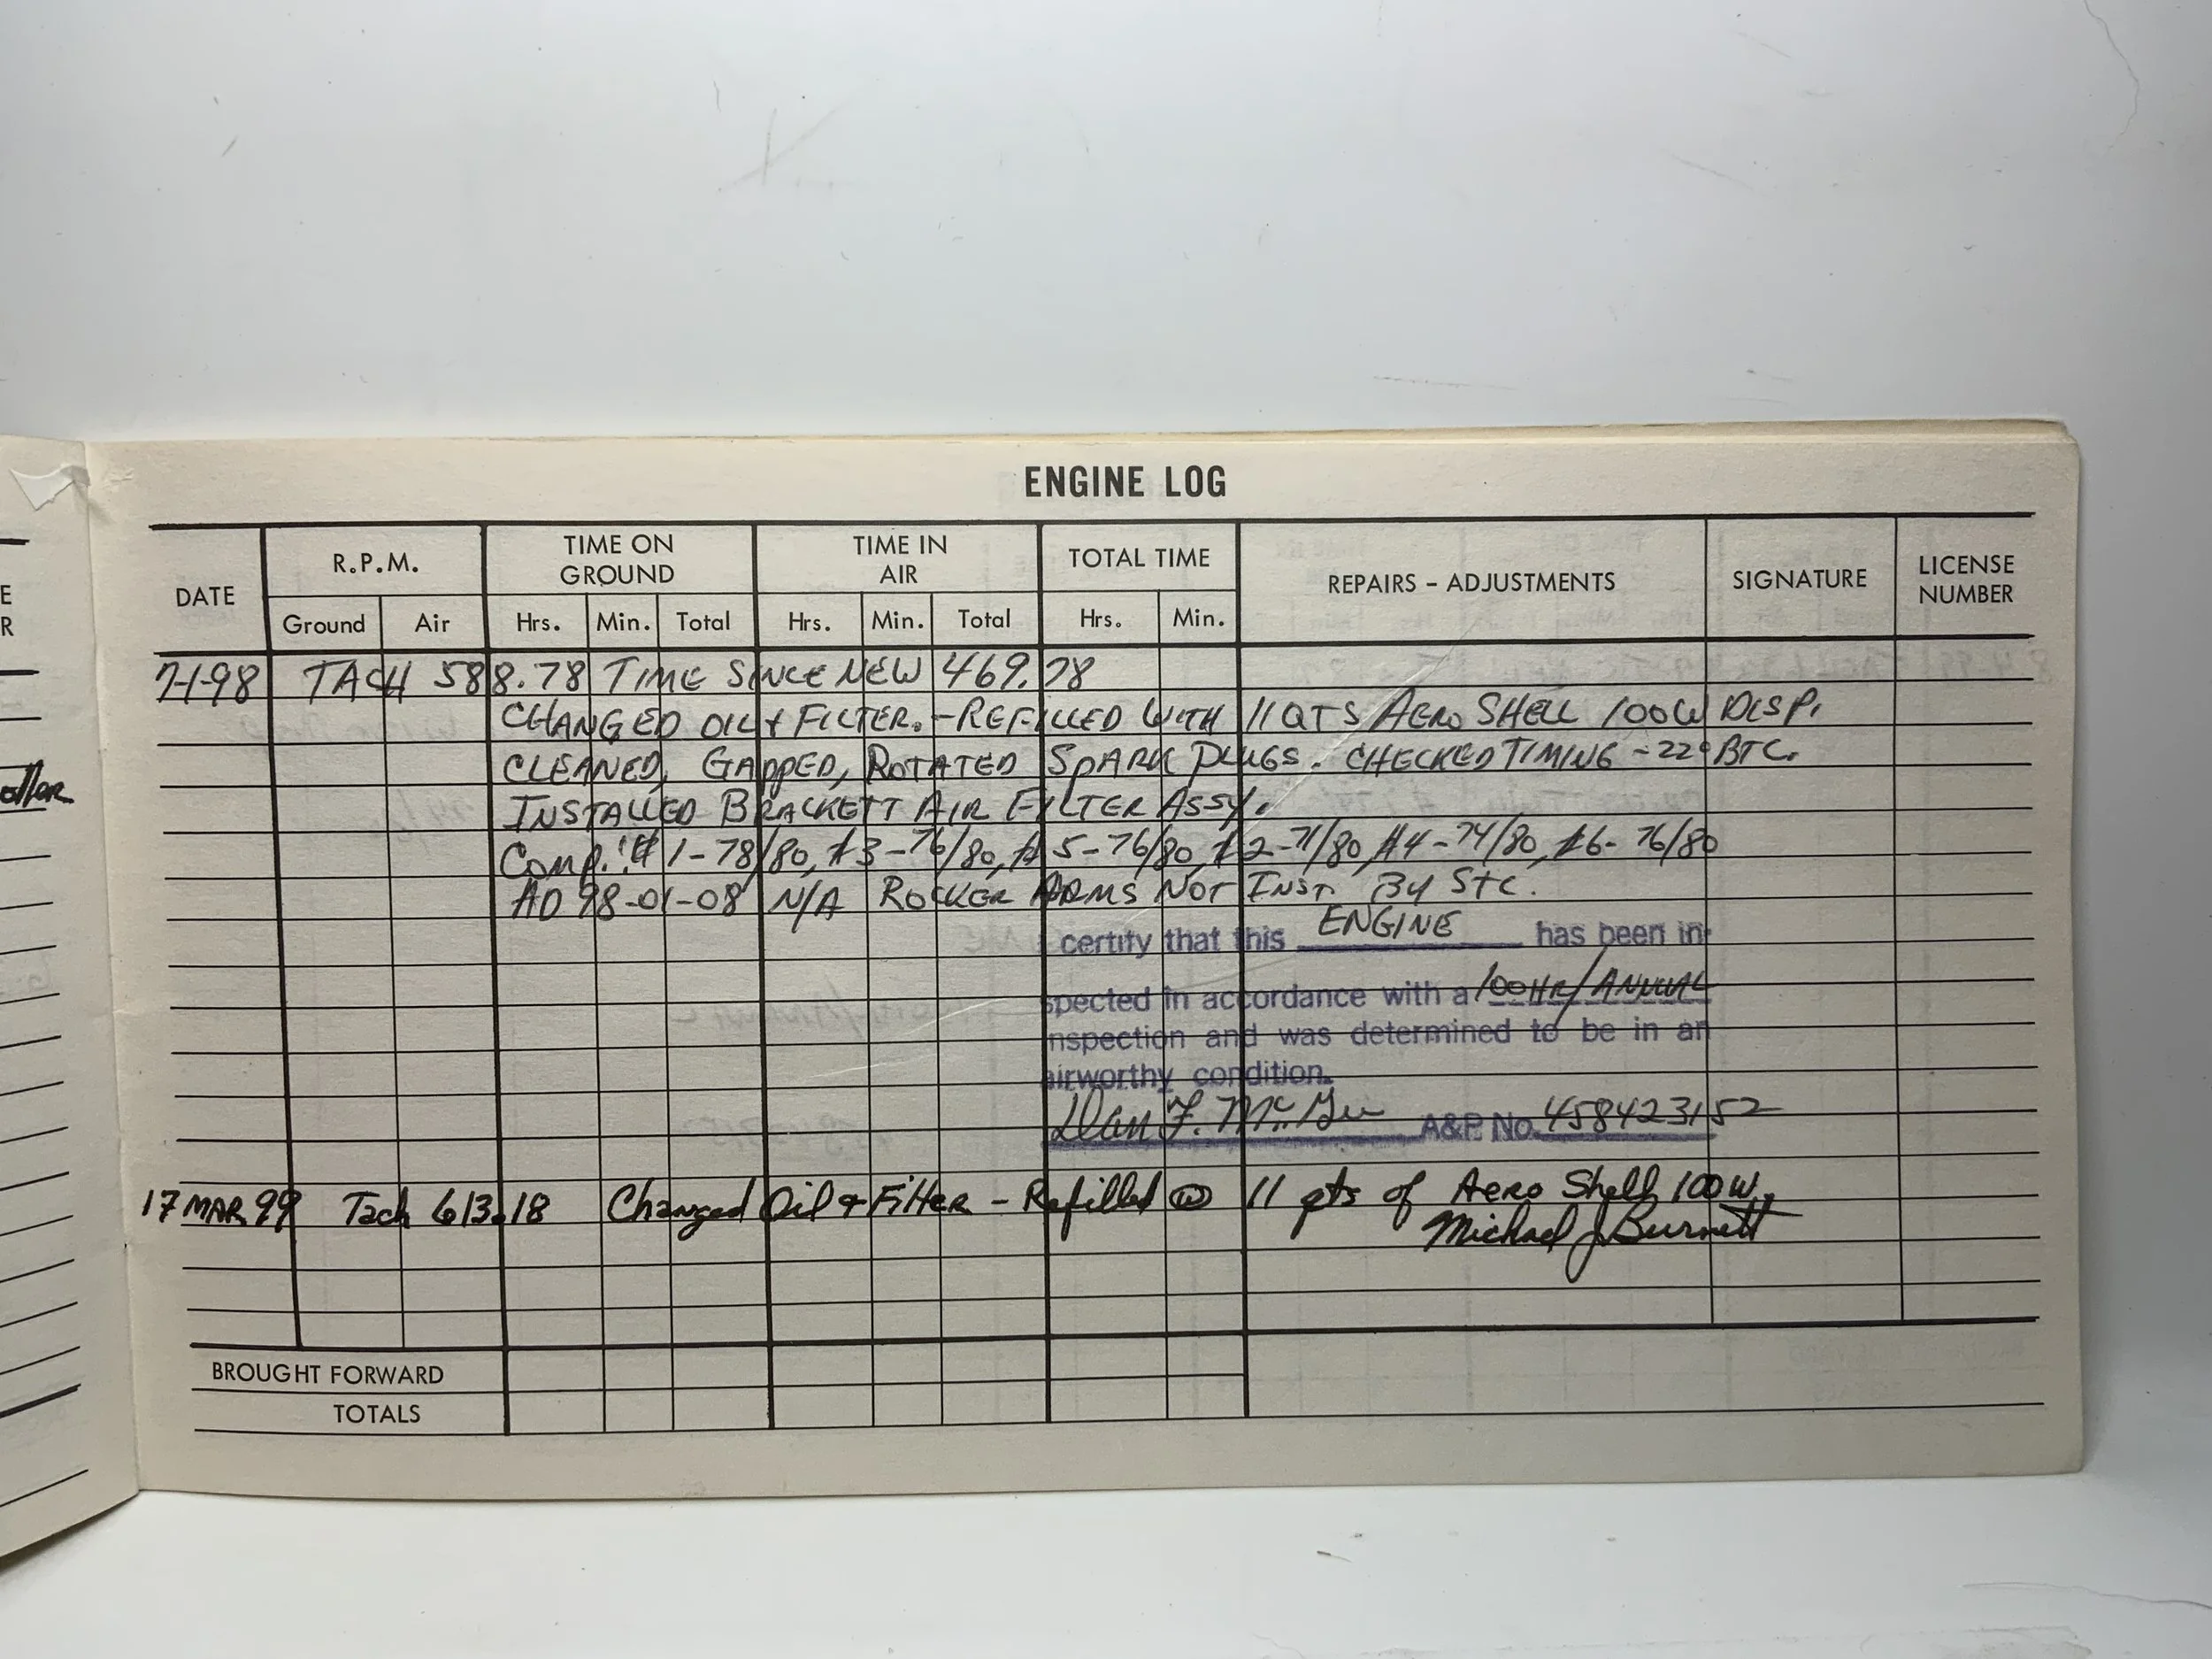 ENGINE LOG
DATE
R.P.M.
TIME ON GROUND
TIME IN AIR
TOTAL TIME
REPAIRS - ADJUSTMENTS
SIGNATURE
LICENSE NUMBER
Ground Air Hrs. Min. Total Hrs. Min. Total Hrs. Min.
7-1-98 TACH 588.78 TIME SINCE NEW 469.78
CHANGED OIL & FILTER. - REFILLED WITH 11 QTS AERO SHELL 100W DISP.
CLEANED, GAPPED, ROTATED SPARK PLUGS. CHECKED TIMING - 22° BTC.
INSTALLED BRACKETT AIR FILTER ASSY.
COMP.: #1-78/80, #3-76/80, #5-76/80, #2-71/80, #4-74/80, #6-76/80
AD 98-01-08 N/A ROCKER ARMS NOT INST. BY STC.
certify that this ENGINE has been in-
spected in accordance with a 100HR/ANNUAL
nspection and was determined to be in an
airworthy condition.
Dan F. A&P No. 458423152
17 MAR 99 Tach 613.18 Changed Oil & Filter - Refilled @ 11 qts of Aero Shell 100W.
Michael J Burnett
BROUGHT FORWARD
TOTALS